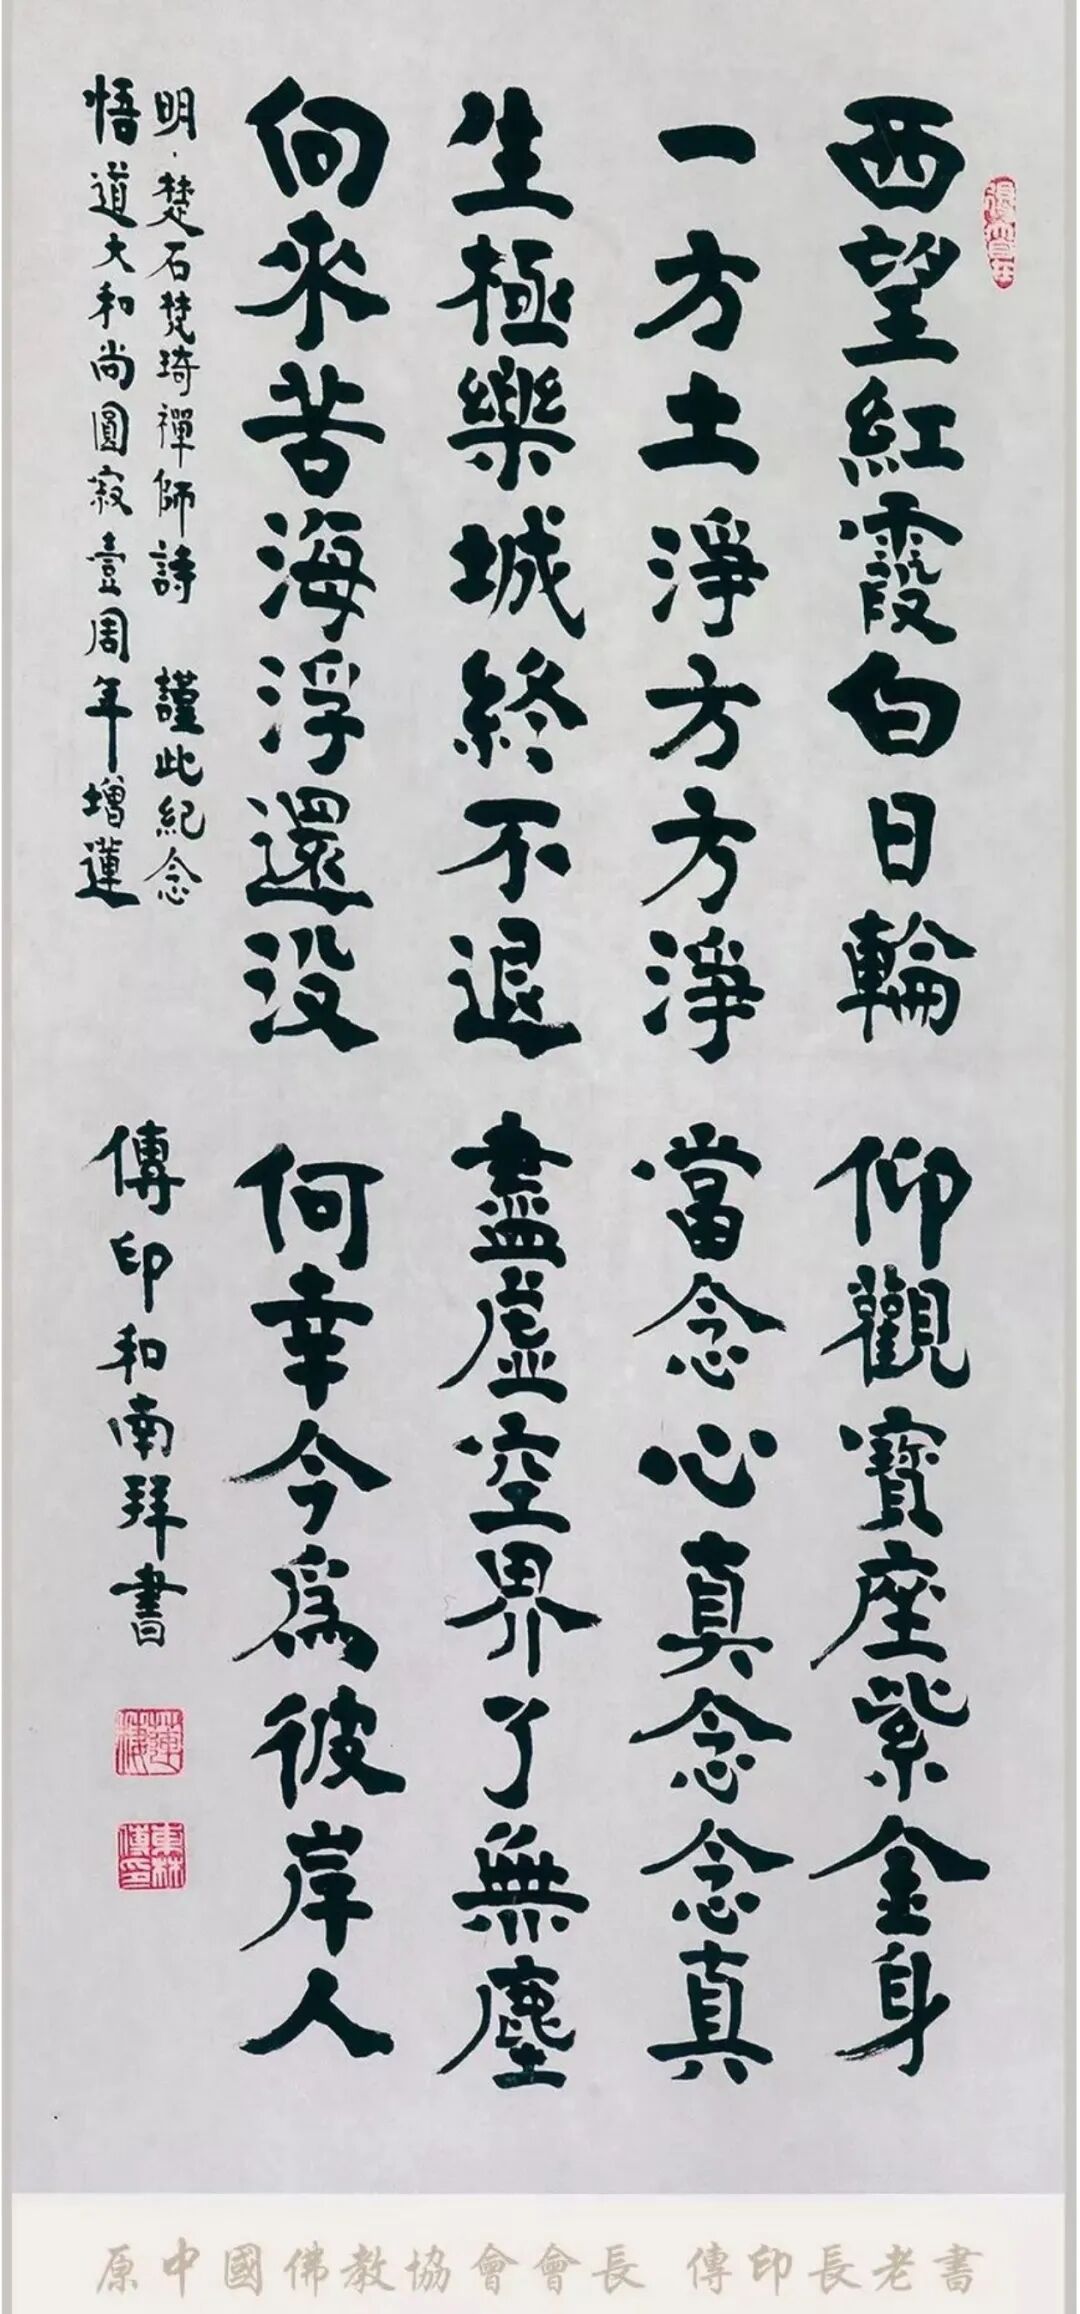 西望紅霞白日輪 仰觀寶座紫金身
一方土淨方方淨 當念心真念念真
生極樂城終不退 盡虛空界了無塵
向來苦海浮還沒 何幸今為彼岸人
明·楚石梵琦禪師詩 謹此紀念
悟道大和尚圓寂壹周年增蓮
傳印和南拜書
蓮栖
東林傳印
原中國佛教協會會長 傳印長老書